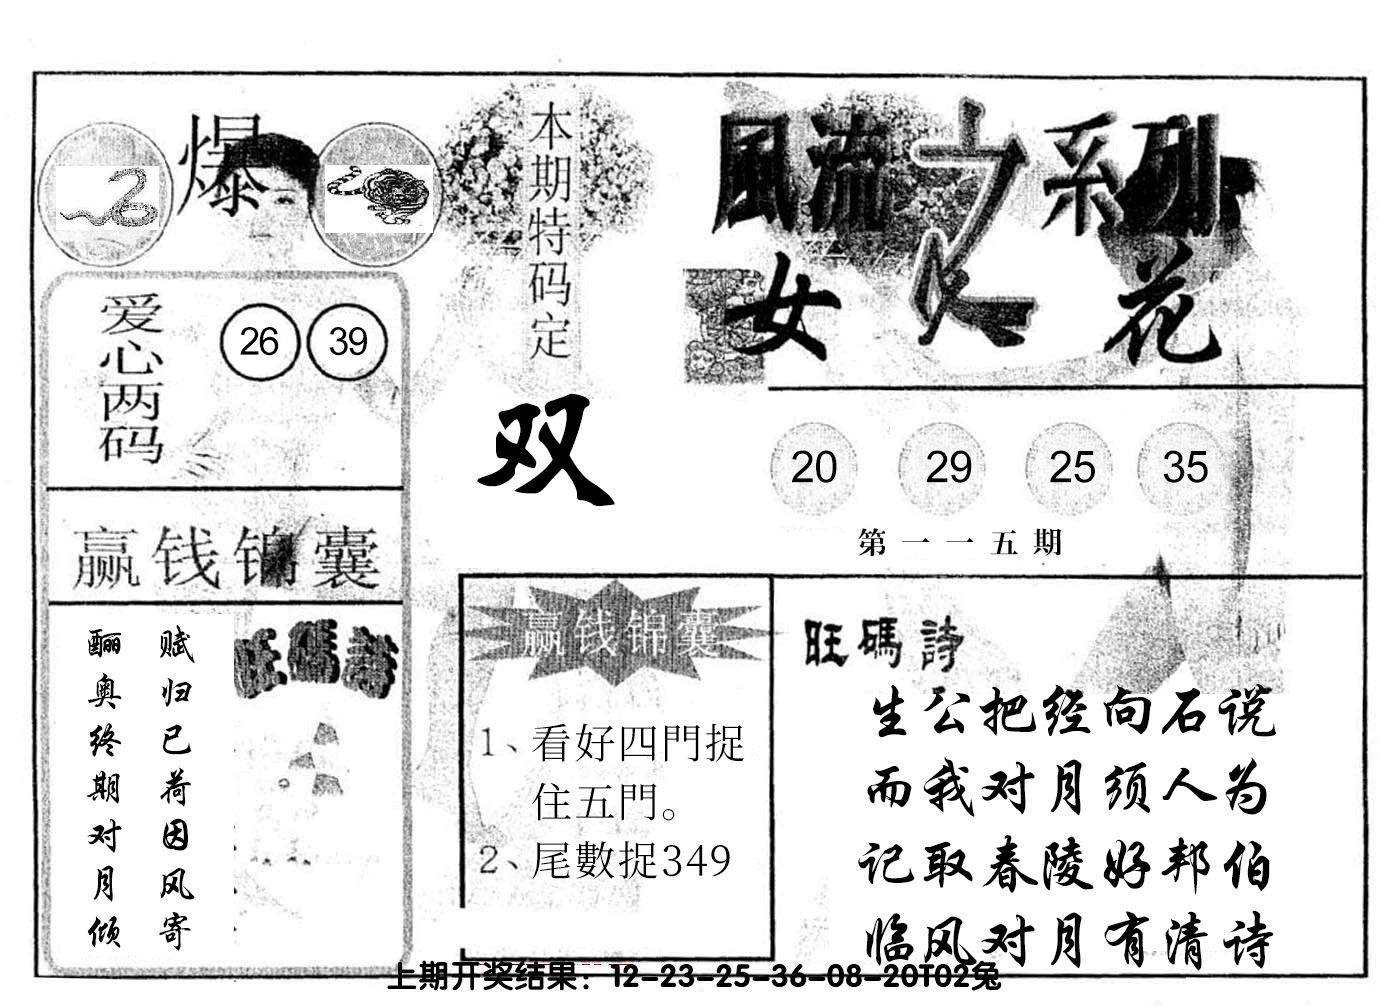 爆
本期特码定
双
風流之系列
女人花
爱心两码
26 39
20 29 25 35
第一一五期
赢钱锦囊
旺碼詩
赋归已荷因风寄
酾奥终期对月倾
赢钱锦囊
1、看好四門捉
住五門。
2、尾數捉349
旺碼詩
生公把经向石说
而我对月须人为
记取春陵好邦伯
临风对月有清诗
上期开奖结果：12-23-25-36-08-20T02兔